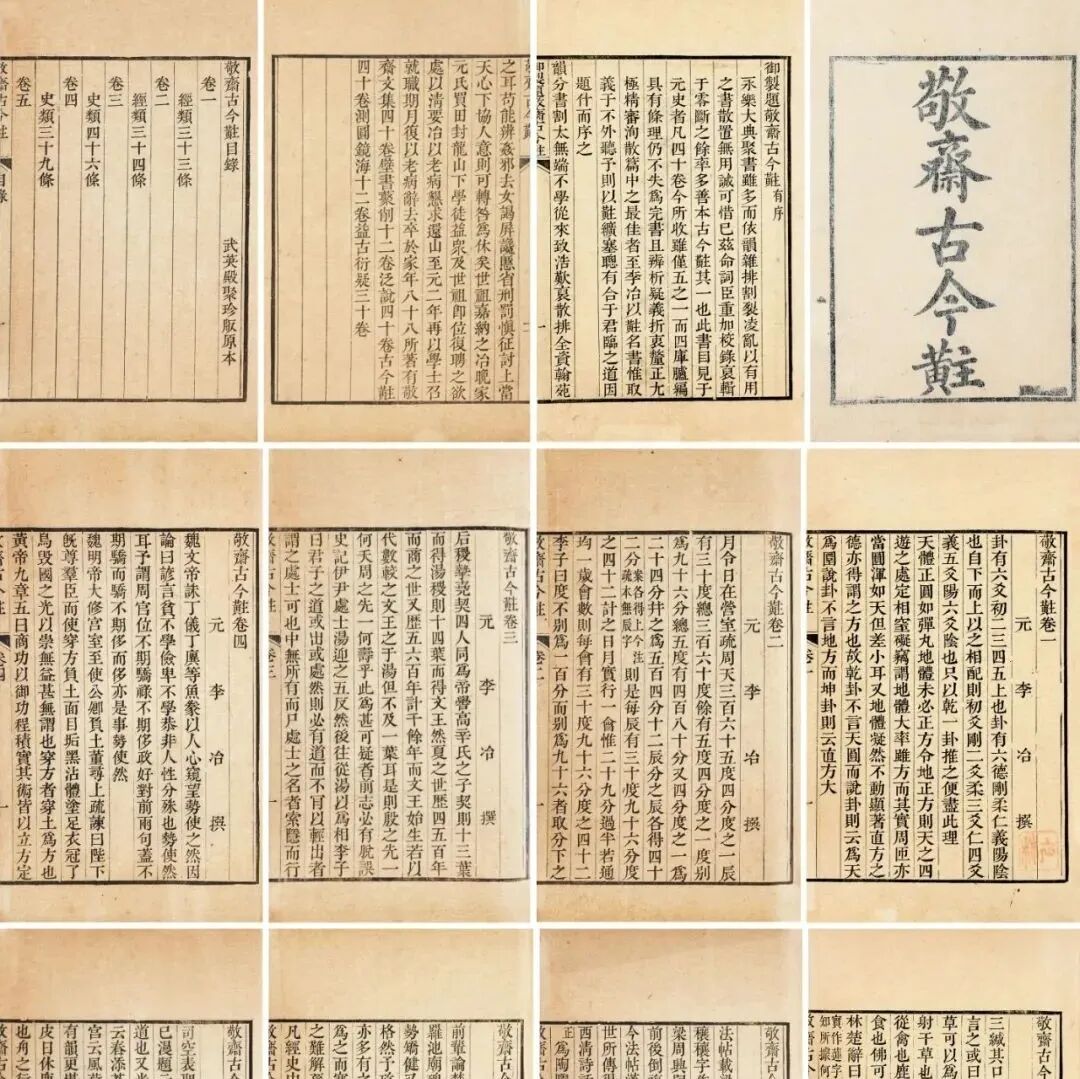 敬齋古今黈
御製題敬齋古今黈有序
永樂大典聚書雖多而依韻雜排割裂凌亂以有用
之書散置無用誠可惜已茲命詞臣重加校錄裒輯
于零斷之餘率多善本古今黈其一也此書目見于
元史者凡四十卷今所收雖僅五之一而四庫臚編
具有條理仍不失爲完書且辨析疑義折衷釐正尤
極精審洵散篇中之最佳者至李冶以黈名書惟取
義于不外聽予則以黈纊塞聰有合于君臨之道因
題什而序之
韻分書割太無端不學從來致浩歎裒散排全資翰苑
之耳苟能辨姦邪去女謁屏讒慝省刑罰愼征討上當
天心下協人意則可轉咎爲休矣世祖嘉納之冶晚家
元氏買田封龍山下學徒益衆及世祖卽位復聘之欲
處以清要冶以老病懇求還山至元二年再以學士召
就職期月復以老病辭去卒於家年八十八所著有敬
齋文集四十卷壁書藂削十二卷泛說四十卷古今黈
四十卷測圓鏡海十二卷益古衍疑三十卷
敬齋古今黈目錄
武英殿聚珍版原本
卷一
經類三十三條
卷二
經類三十四條
卷三
史類四十六條
卷四
史類三十九條
卷五
敬齋古今黈卷一
元 李 冶 撰
卦有六爻初二三四五上也卦有六德剛柔仁義陽陰
也自下而上以之相配則初爻剛二爻柔三爻仁四爻
義五爻陽六爻陰也只以乾一卦推之便盡此理
天體正圓如彈丸地體未必正方令地正方則天之四
遊之處定相窒礙竊謂地體大率雖方而其實周匝亦
當圓渾如天但差小耳又地體凝然不動顯著直方之
德亦得謂之方也故乾卦不言天圓而說卦則云爲天
爲圜說卦不言地方而坤卦則云直方大
敬齋古今黈卷二
元 李 冶 撰
月令日在營室疏周天三百六十五度四分度之一辰
有三十度總三百六十度餘有五度四分度之一度别
爲九十六分總五度有四百八十分又四分度之一爲
二十四分幷之爲五百四分十二辰分之辰各得四十
二分案各得上今注疏本無辰字則是每辰有三十度九十六分度
之四十二計之日月實行一會惟二十九分過半若通
均一歲會數則每會有三十度九十六分度之四十二
李子曰度不别爲一百分而别爲九十六者取分下之
敬齋古今黈卷三
元 李 冶 撰
后稷摯堯契四人同爲帝嚳高辛氏之子契則十三葉
而得湯稷則十四葉而得文王然夏之世歴四五百年
而商之世又歴五六百年計千餘年而文王始生若以
代數較之文王之于湯但不及一葉耳是則殷之先一
何天周之先一何壽乎此爲甚可疑者前志必有脫誤
史記伊尹處士湯迎之五反然後往從湯以爲相李子
曰君子之道或出或處然則必有道而不肎以輕出者
謂之處士可也中無所有而尸處士之名者索隱而行
敬齋古今黈卷四
元 李 冶 撰
魏文帝誅丁儀丁廙等魚豢以人心窺望勢使之然因
論曰諺言貧不學儉卑不學恭非人性分殊也勢使然
耳予謂周官位不期驕祿不期侈政好對前兩句蓋不
期驕而驕不期侈而侈亦是事勢使然
魏明帝大修宮室至使公卿負土董尋上疏諫曰陛下
旣尊羣臣而使穿方負土面目垢黑沾體塗足衣冠了
鳥毀國之光以崇無益甚無謂也穿方者穿土爲方也
黃帝九章五曰商功以御功程積實其術皆以立方定
敬齋古今
三緘其口
言之或曰
草可以爲
射干草也
從禽也鹿
食也佛可
林楚辭曰
敬齋古
法帖載
穰穰字
梁周興
前後倒
今法帖
世所傳
西清詩話
敬齋古今
前輩論
羅池廟碑
勢矯健
格然予
亦多有之
爲之而
之難解
凡經史中
敬齋古今
司空表聖
已漫題
道也又
云春添
宮云風
有韻更
皮日休
也舟之